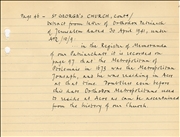 Page 48 - ST GEORGE'S CHURCH, (cont)
Extract from letter of Orthodox Patriarch
of Jerusalem dated 30 April 1941, under
in the Register of Memoranda
of our Patriarchate it is recorded on
page 87 that the Metropolitan of
Ptolemais in 1873 was the Metropolitan
Joasaph, and he was residing in Acre
at that time. Doubtless even before
this date Orthodox Metropolitans used
to reside at Acre as can be ascertained
from the history of our Church